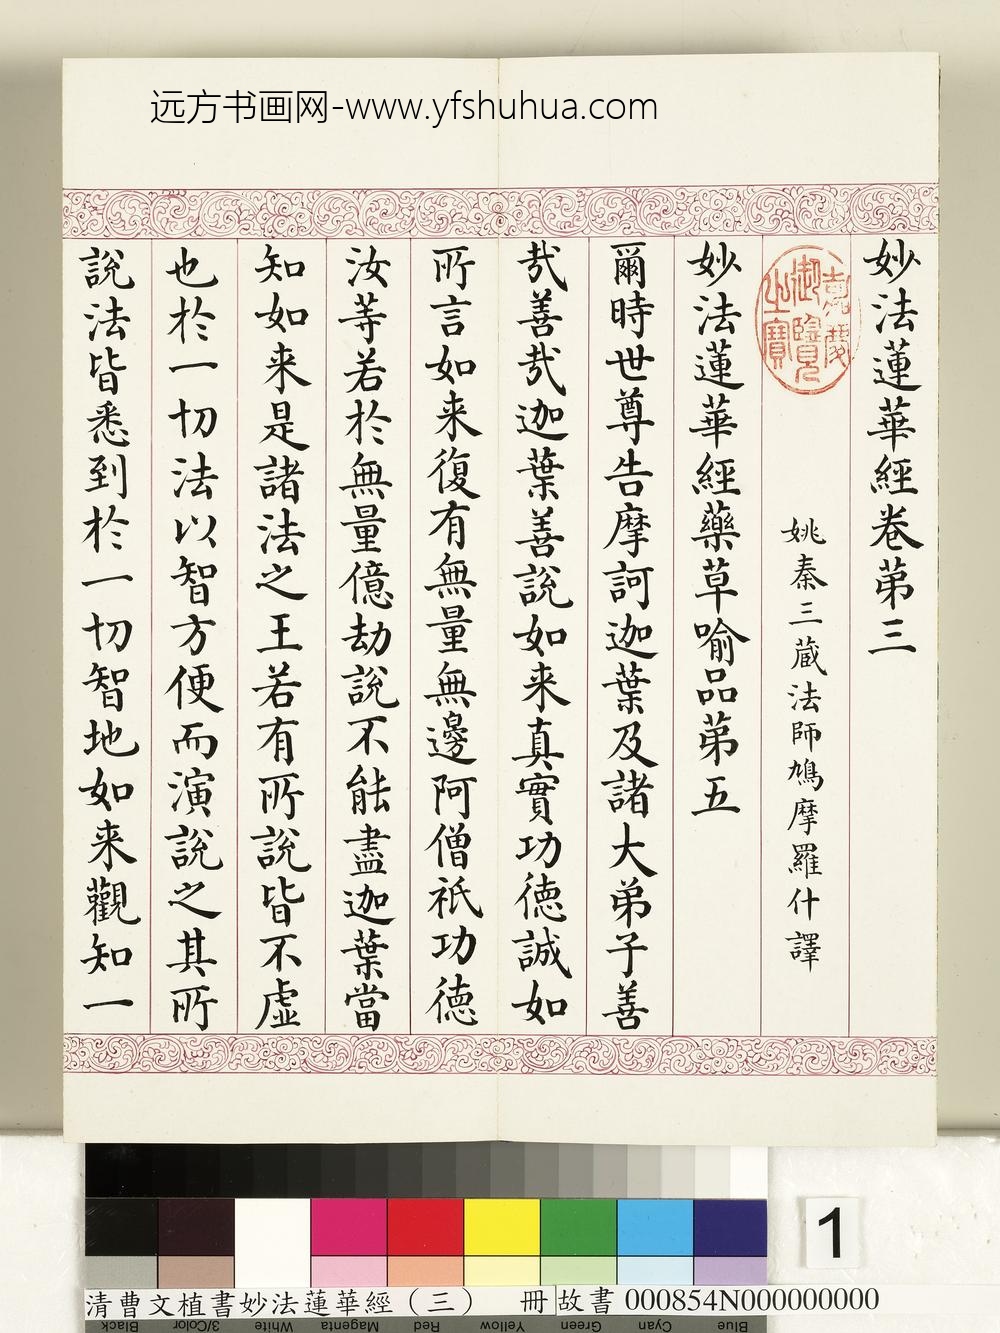 远方书画网-www.yfshuhua.com
妙法蓮華經卷第三
嘉慶御覽之寶
姚秦三蔵法師鳩摩羅什譯
妙法蓮華經藥草喻品第五
爾時世尊告摩訶迦葉及諸大弟子善
哉善哉迦葉善說如来真實功德誠如
所言如来復有無量無邊阿僧祇功德
汝等若於無量億劫說不能盡迦葉當
知如来是諸法之王若有所說皆不虛
也於一切法以智方便而演說之其所
說法皆悉到於一切智地如来觀知一
1
清曹文植書妙法蓮華經（三） 冊 故書 000854N000000000
Black 3/Color White Magenta Red Yellow Green Cyan Blue